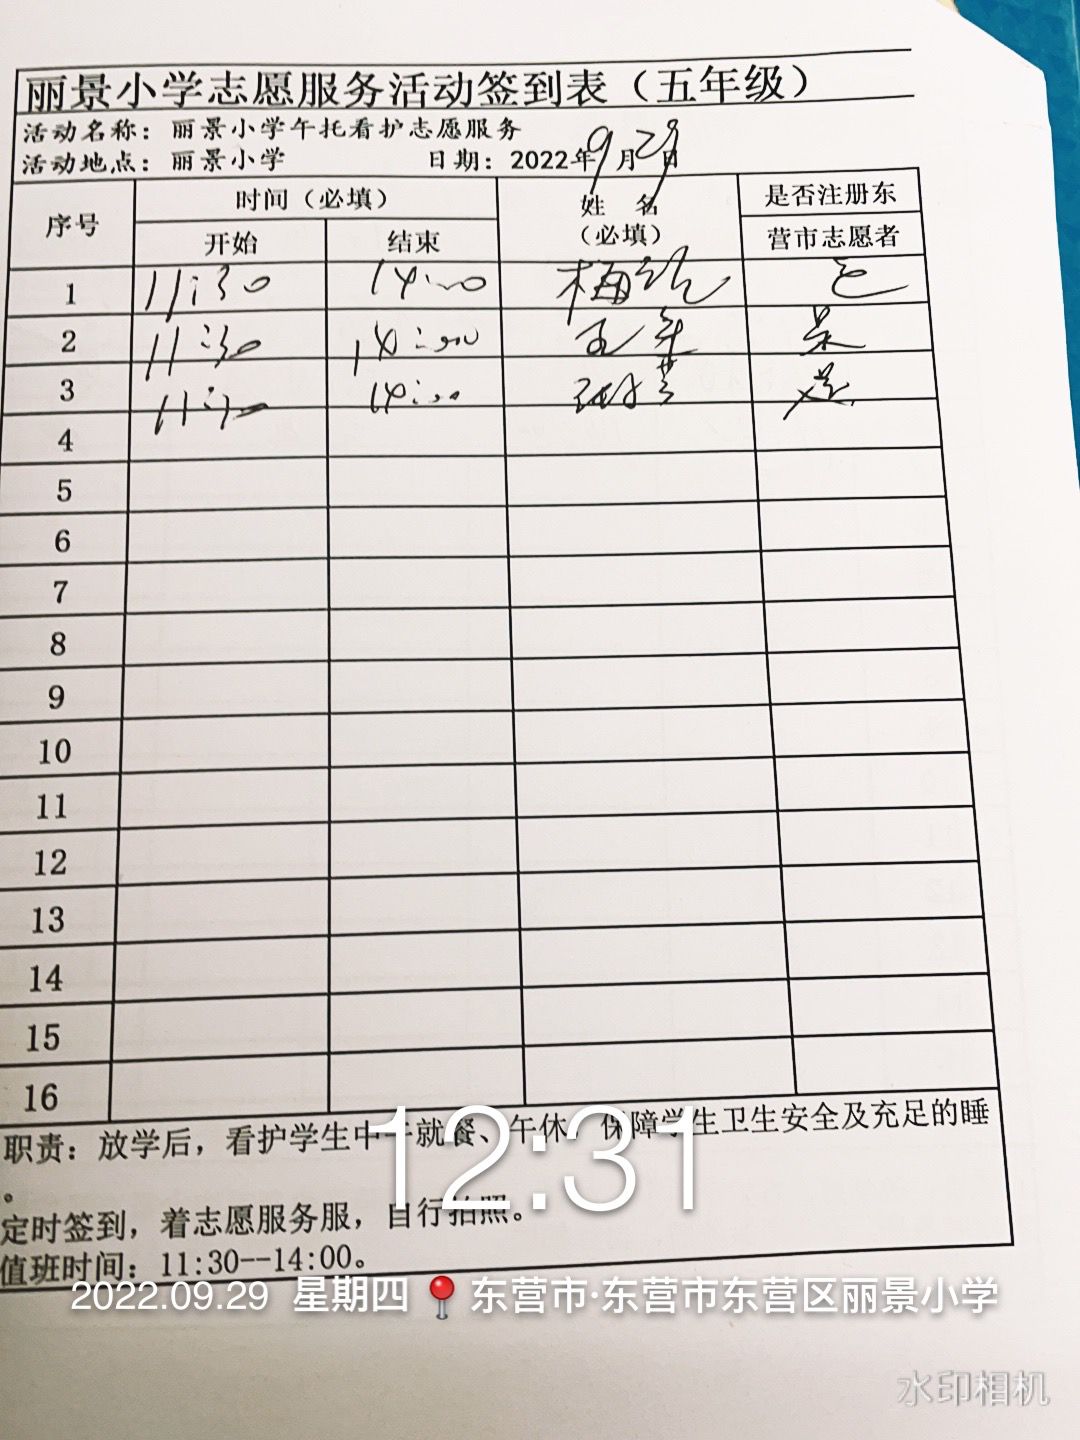 丽景小学志愿服务活动签到表（五年级）
活动名称：丽景小学午托看护志愿服务
活动地点：丽景小学 日期：2022年9月29日
序号 时间（必填） 姓 名（必填） 是否注册东营市志愿者
开始 结束
1 11:30 14:00
2 11:30 14:00 是
3 11:30 14:00
4
5
6
7
8
9
10
11
12
13
14
15
16
职责：放学后，看护学生中午就餐、午休，保障学生卫生安全及充足的睡
。
定时签到，着志愿服务服，自行拍照。
值班时间：11:30--14:00。
12:31
2022.09.29 星期四 东营市·东营市东营区丽景小学
水印相机